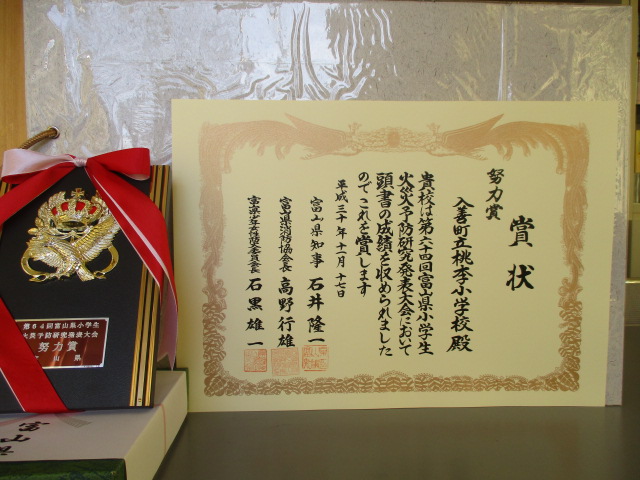 賞状
努力賞
入善町立桃李小学校殿
貴校は第六十四回富山県小学生
火災予防研究発表大会において
頭書の成績を収められました
のでこれを賞します
平成三十年十一月十七日
富山県知事 石井隆一
富山県消防協会長 高野行雄
石黒雄一
第64回富山県小学生
火災予防研究発表大会
努力賞
富山県